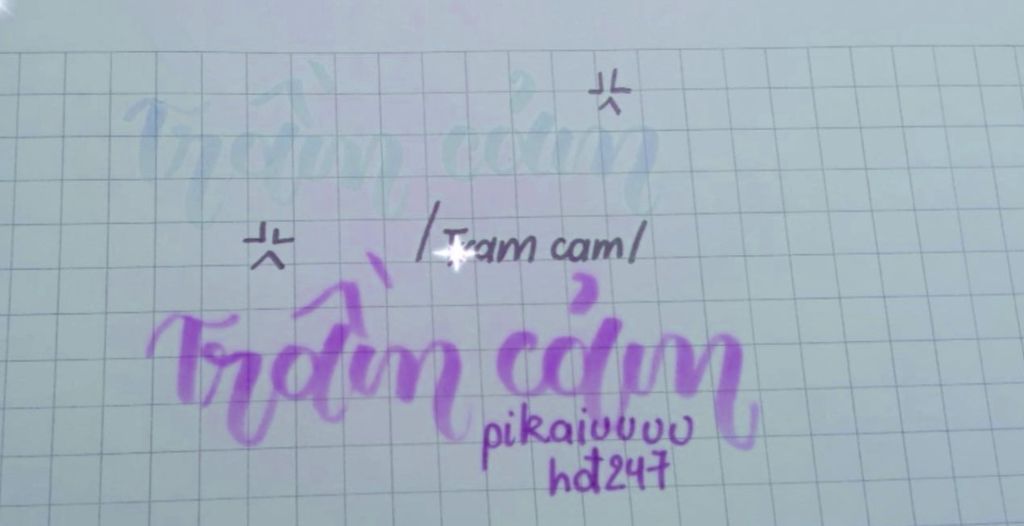 Trầm cảm
/Tram cam/
Trầm cảm
pikaiuuuu
hđt247